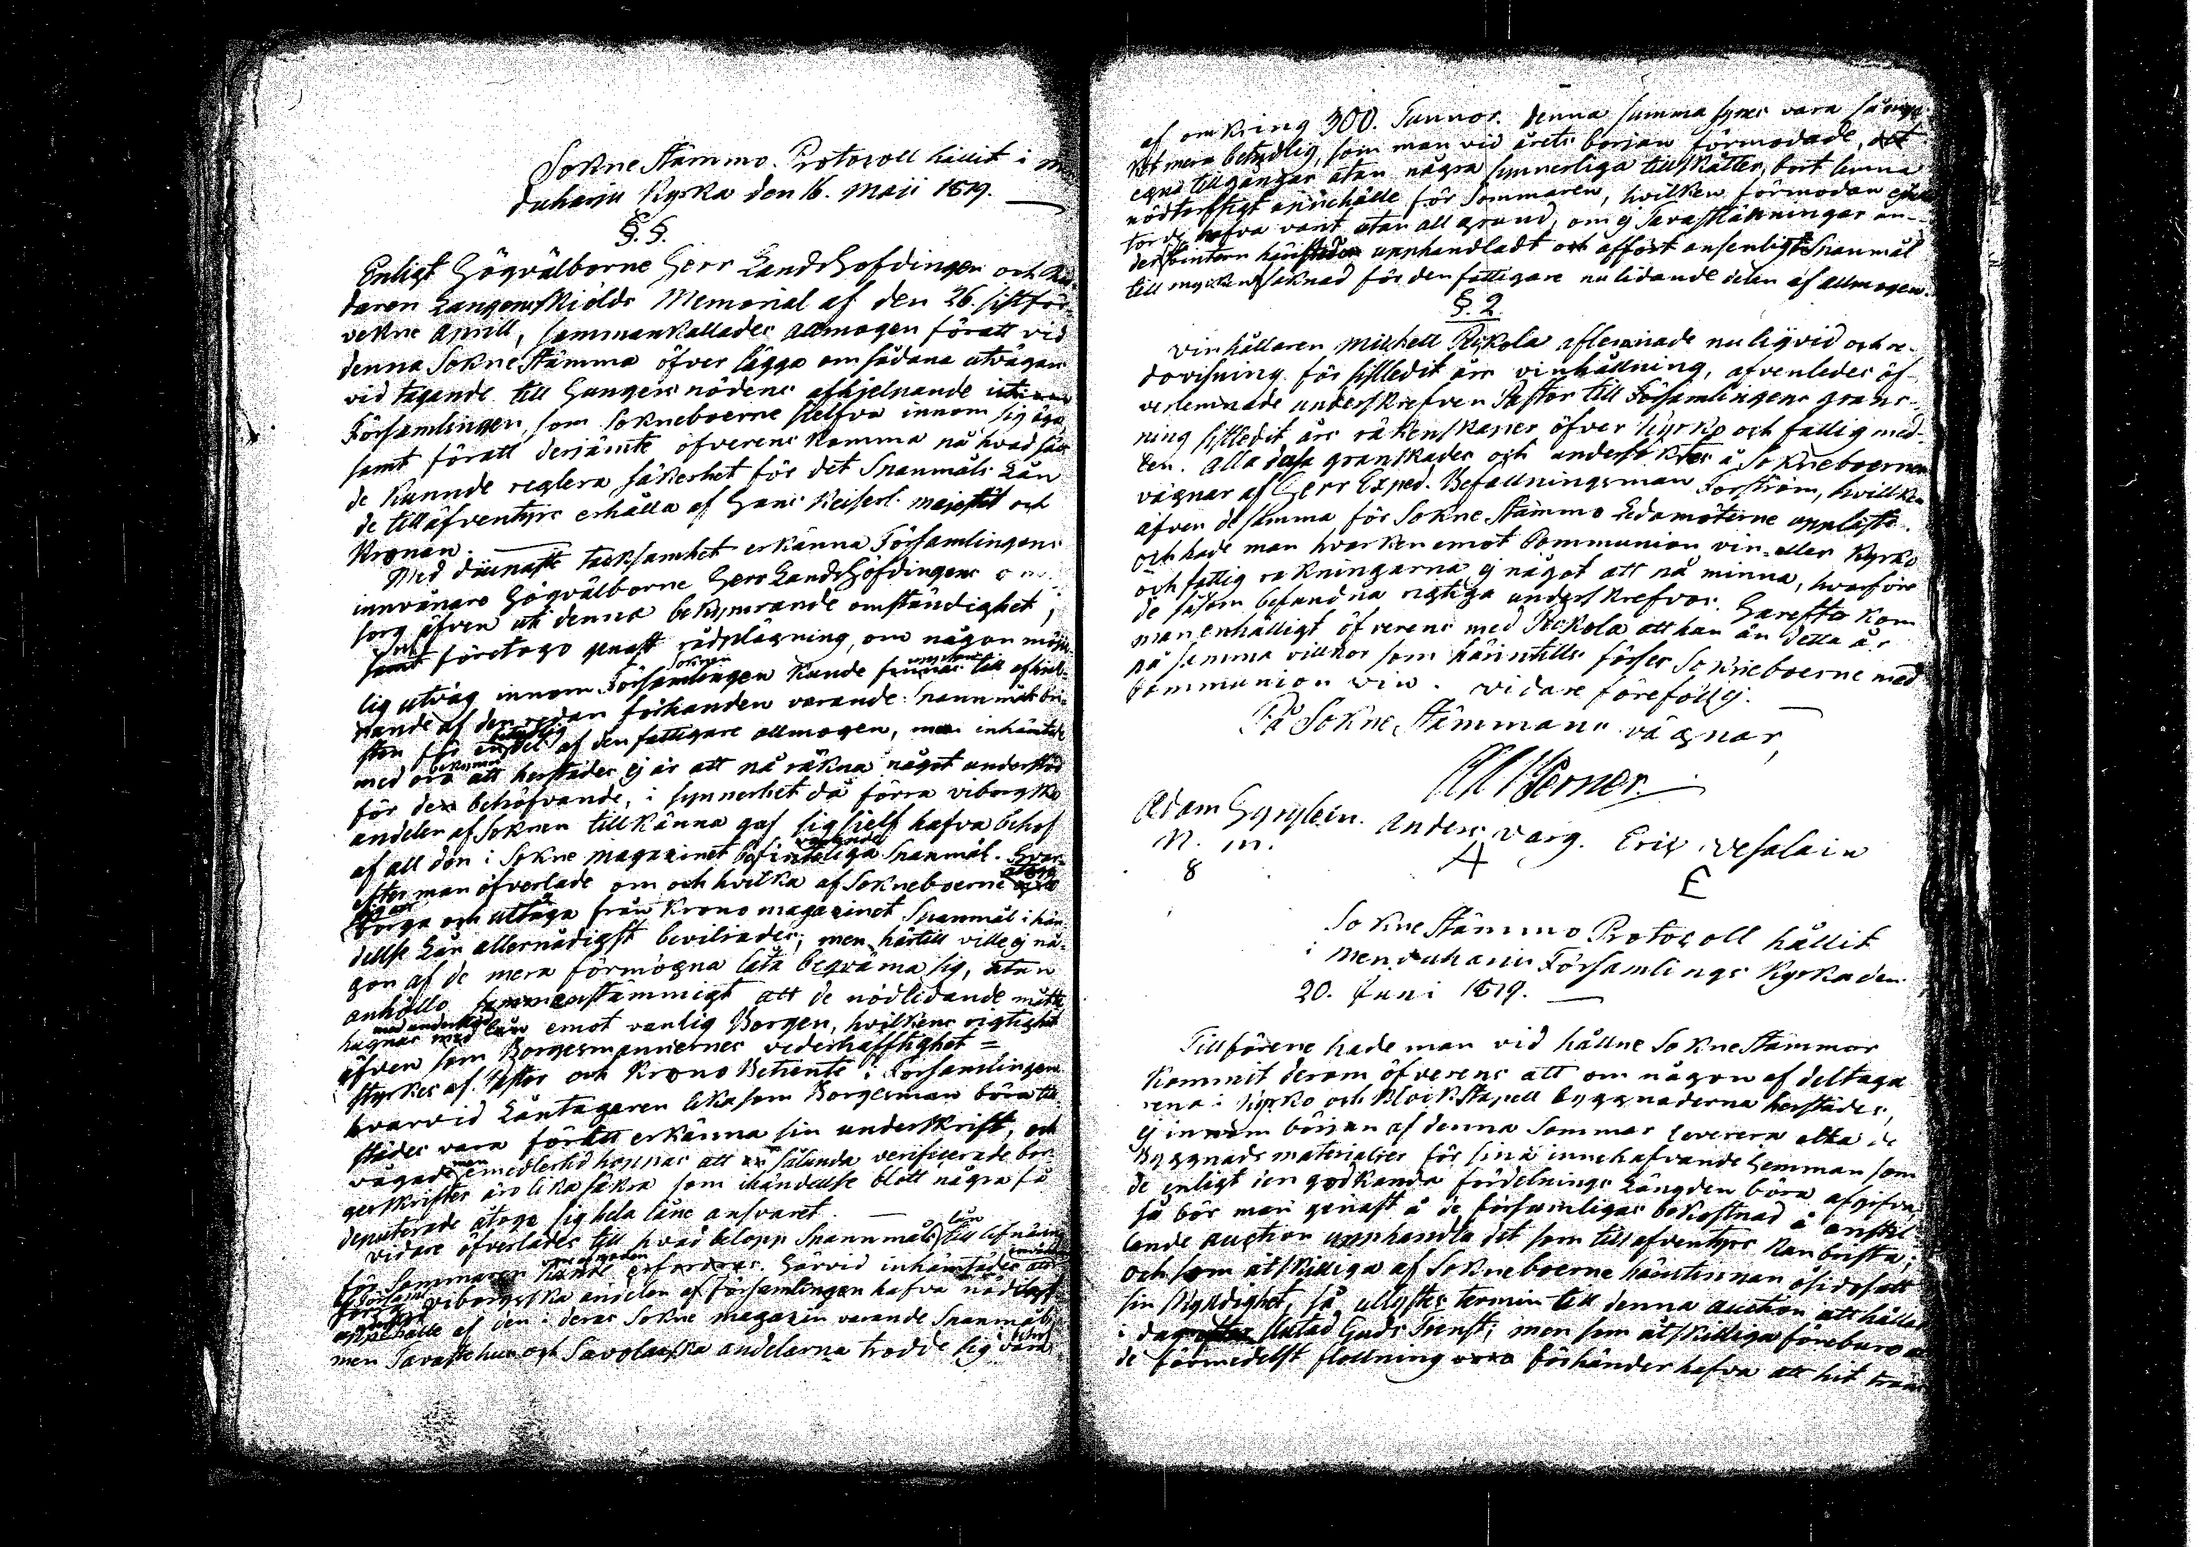 Sokne Stämmo Protocoll hållit i
duharju Kyrka den 16. Maji 1819.
§. §.
Enligt Högvälborne Herr Landshöfdingen och
daren Langenskiölds Memorial af den 26. sistför-
vekne April, sammankallades allmogen föratt vid
denna Sokne Stämma öfver lägga om sådana utvägar
vid tagande till Hungers nödens afhjelpande
Församlingen, som sokneboerne sielfva innom sig äga
samt föratt derjämte öfverens komma på hvad sätt
de kunnde reglera säkerhet för det Spanmåls Lån
de till äfventyrs erhålla af Hans Keiserl. Majestät och
Kronan.
Med diupaste tacksamhet erkänna Församlingens
innvånare Högvälborne Herr Landshöfdingens om
sorg äfven uti denna bekymrande omständighet,
samt företogo genast rådplägning, om någon möj-
lig utväg innom Församlingen kunde till afhiel-
pande af den redan förhanden varande Spannmåls bri-
sten för en del af den fattigare allmogen, men inhämtade
med oro att herstädes ej är att på räkna något understöd
för den behöfvande, i synnerhet då förra viborgska
andelen af Soknen tillkänna gaf sig sielf hafva behof
af all den i Sokne magazinet befinteliga Spanmål. Hvar-
efter man öfverlade om och hvilka af Sokneboerne
borga och uttaga från Krono magazinet Spanmål i hän
delse Lån allernådigst beviliades; men härtill ville ej nå-
gon af de mera förmögna låta beqväma sig, utan
anhöllo sammanstämmigt att de nödlidande måtte
hugnas med lån emot vanlig Borgen, hvilkens rigtighet
äfven som Borgesmännernes vederhäfftighet
styrkes af Pastor och Krono Betiente i Församlingen
hvarvid Låntagaren lika som Borgesman böra till
städes vara föratt erkänna sin underskrift, och
vågade emedlertid hoppas att sålunda verificerade bor
gesskrifter äro lika säkra som ihändelse blott några få
deputerade åtogo sig hela låne ansvaret.
Vidare öfverlades till hvad belopp Spannmåls lån till lifnäring
för Sommaren kunde erfordras. Härvid inhämtades
viborgska andelen af församlingen hafva nödtorft
uppehälle af den i deras Sokne magazin varande Spanmål;
men Tavastehus och Savolaxska andelarna trodde sig vara
af omkring 300. Tunnor. Denna summa synes vara så myc-
ket mera betydlig, som man vid årets början förmodade, det
egna tillgångar utan några synnerliga tillskätter, bort lemna
nödtorftigt uppehälle för Sommaren, hvilken förmodan
torde hafva varit utan all grund, om ej Tavastlänningar un-
der vintern härstädes upphandladt och affört ansenligt Spanmål
till mycken saknad för den fattigare nu lidande delen af allmogen.
§. 2.
Vinhållaren Michell Pekola aflemnade nu liqvid och re-
dovisning för sistledit års vinhållning, äfvenledes öf-
verlemnade underskrefven Pastor till Församlingens gransk-
ning sistledit års räkenskaper öfver Kyrko och fattig med-
len. Alla dessa granskades och undersöktes å Sokneboernes
vägnar af Herr Exped. Befallningsman Forström, hvilken
äfven de samma för Sokne Stämmo Ledamöterne uppläste.
och hade man hvarken emot Communion vin eller Kyrko
och fattig räkningarna ej något att på minna, hvarföre
de såsom befundna rigtiga underskrefvos. Harefter kom
man enhälligt öfverens med Pekola att han än detta år
på samma villkor som härintills förser Sokneboerne med
communion vin. Vidare förefölj ej.
På Sokne Stämmans vägnar,
Adam Hynylein. Anders varg. Eric vesalain
N. m.
8
A
E
Sokne Stämmo Protocoll hållit
i Menduharju Församlings Kyrka den
20. Juni 1819.
Tillförene hade man vid hållne Sokne Stämmor
kommit derom öfverens att om någon af deltaga
rena i Kyrko och klockstapell byggnaderna herstädes,
ej innom början af denna Sommar leverera alla de
byggnads materialier för sina innehafvande Hemman som
de enligt den godkända fördelnings Längden böra afgifva,
så bör man genast å de försumligas bekostnad å anstäl
lande auction upphandla det som till äfventyrs kan brista;
och som åtskilliga af Sokneboerne härutinnan åsidosatt
sin skyldighet, så utlystes termin till denna auction att hållas
i dag slutad Guds Tienst; men som åtskilliga föreburo
de förmedelst flottning förhänder hafva att hit tran